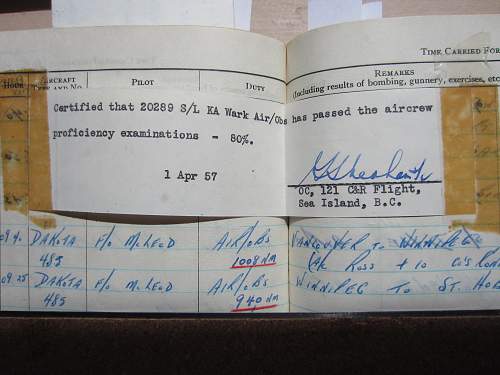 TIME CARRIED FOR
HOUR AIRCRAFT PILOT DUTY REMARKS
TYPE AND NO. (Including results of bombing, gunnery, exercises, etc
Certified that 20289 S/L KA Wark Air/Obs has passed the aircrew
proficiency examinations - 80%.
1 Apr 57
OC, 121 C&R Flight,
Sea Island, B.C.
DAKOTA F/O McLEOD AIR/OBS VANCOUVER TO WINNIPEG
485 1008 NM ROSS + 10
0925 DAKOTA F/O McLEOD AIR/OBS WINNIPEG TO ST. HUB
485 940 NM